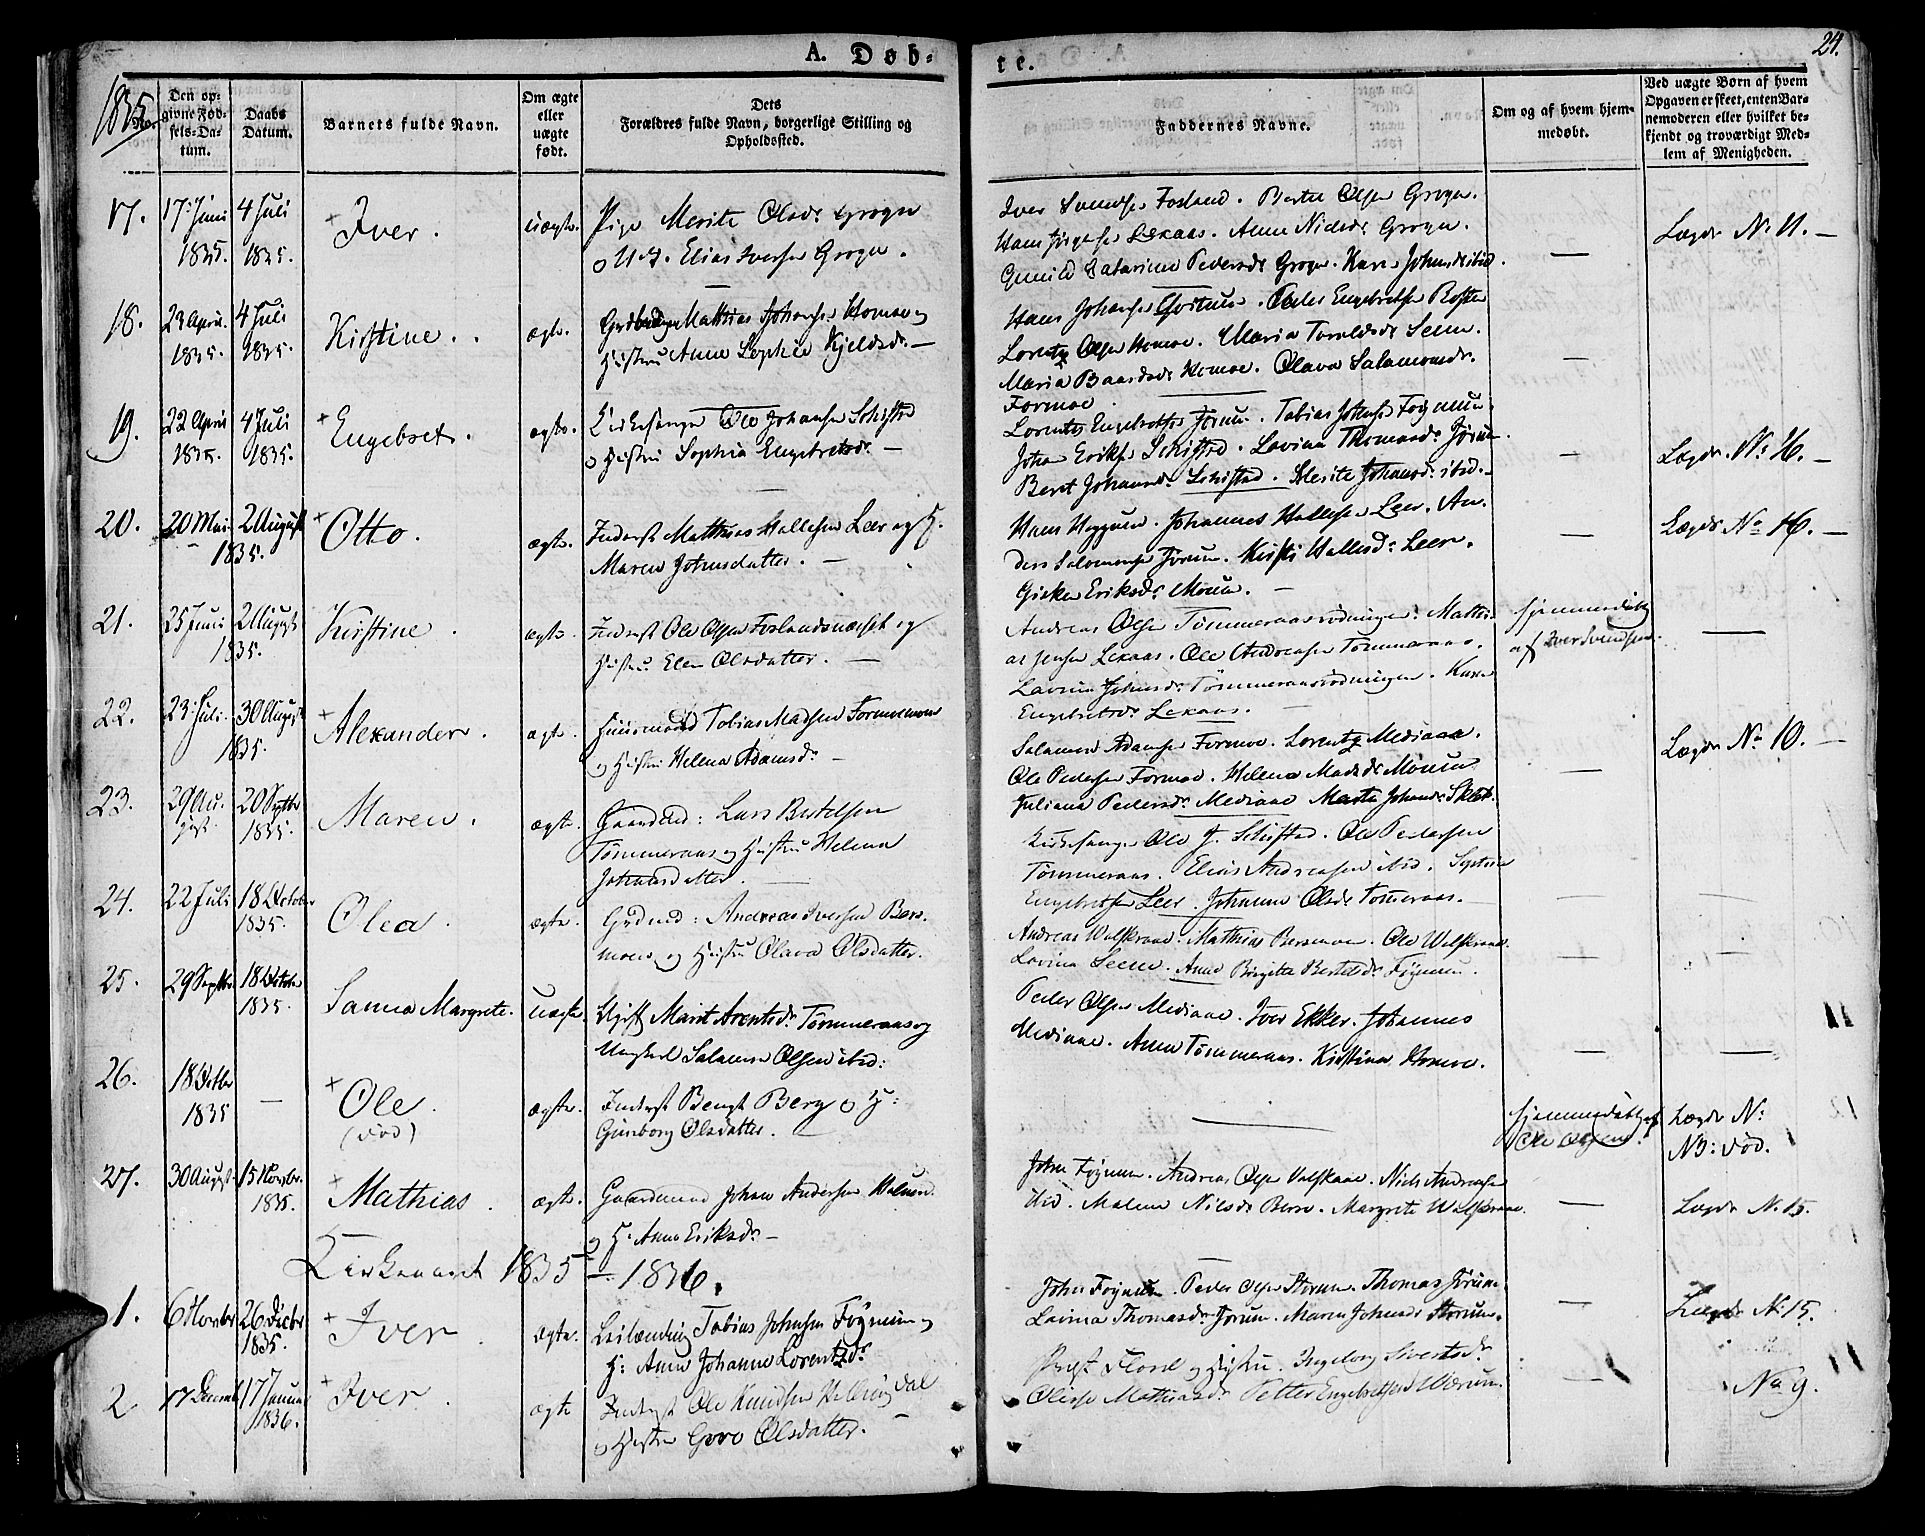 A. Døb-
te.
24.
1835
No.
Den op-
givne Fød-
sels-Da-
tum.
Daabs
Datum.
Barnets fulde Navn.
Om ægte
eller
uægte
født.
Dets
Forældres fulde Navn, borgerlige Stilling og
Opholdssted.
Faddernes Navne.
Om og af hvem hjem-
medøbt.
Ved uægte Børn af hvem
Opgaven er skeet, enten Bar-
nemoderen eller hvilket be-
kjendt og troværdigt Med-
lem af Menigheden.
17. 17. Juni 4 Juli
1835. 1835.
Iver.
uægte.
Pige Merite Olsdr Grogn
Elias Iversen Grogn.
Iver Svendsen Fosland. Berte Olsen Grogn.
Lexaas. Anne Nielsdr Grogn.
Gunild Catarina Pedersdr Grogn. Karen Johnsdr ibid.
—
Lægds No 11. —
18. 23 April. 4 Juli
1835. 1835.
Kirstine.
ægte.
Mathias Johansen Homoe og
Hustru Anne Sophie Kjeldsdr. —
Hans Johansen. Peder Engebretsen
Lorentz Olsen Homoe. Maria Toraldsdr Seem.
Maria Baardsdr Homoe. Olava Salamonsdr.
Formoe.
—
19. 22 April 4 Juli
1835. 1835.
Engebret.
ægte.
Kirkesanger Ole Johansen Schistad
og Hustru Sophia Engebretsdr. —
Lorentz Engebretsen Jørum. Tobias Johnsen Føynum.
Johan Eriksen Schistad. Lavina Thomasdr Jørum.
Beret Johansdr Schistad. Merite Johansdr ibid. —
—
Lægds. No 16. —
20. 20 Mai 2 August
1835.
Otto.
ægte.
Inderst Matthias Hallesen Leer og H.
Maren Johnsdatter. —
Hans. Johannes Hallesen Leer. An-
ders Salomonsen Jørum. Kirsti Hallesdr Leer.
Gisken Eriksdr Moum. —
—
Lægds No 16. —
21. 25 Juni 2 August
1835.
Kirstine.
ægte.
Inderst Ole Olsen Foslandsnæsset og
Hustru Elen Olsdatter. —
Andreas Olsen Tømmeraasrødningen. Mathi-
as Jensen Lexaas. Ole Andreasen Tømmeraas.
Lavina Johnsdr Tømmeraasrødningen. Karen
Engebretsdr Lexaas. —
Hjemmedøbt
af Iver Svendsen.
—
22. 23. Juli. 30 August
1835.
Alexander.
ægte.
Huusmand Tobias Madsen Formoemoen
og Hustru Helena Adamsdr —
Salamon Adamsen Formoe. Lorentz Mediaae.
Ole Pedersen Formoe. Helena Madsdr Moum
Juliana Pedersdr Mediaae Marta Johansdr
—
Lægds No 10. —
23. 29 Au-
gust. 20 Septbr
1835.
Maren.
ægte.
Gaardmd: Lars Bertelsen
Tømmeraas og Hustru Helena
Johansdatter. —
Kirkesanger Ole J. Schistad. Ole Pedersen
Tømmeraas. Elias Andreasen ibid. Sophia
Engebretsen Leer. Johanna Olsdr Tømeraas.
—
24. 22 Juli 18 October
1835.
Olea.
ægte.
Grdmd: Andreas Iversen Bers-
moen og Hustru Olava Olsdatter.
Andreas Wulfkraae. Mathias Bersmoen. Ole Wulfkraae.
Lavina Seem. Anne Birgitta Bertelsdr Føynum.
—
25. 29 Septbr. 18 October
1835.
Sanna Margrete.
uægte.
Ugift Marit Arentsdr Tømmeraas og
Ungkarl Salamon Olsen ibid:
Peder Olsen Mediaae. Iver Ekker. Johannes
Mediaae. Anna Tømmeraas. Kirstina Homoe.
—
26. 18 Octbr —
1835
Ole.
(død)
ægte.
Inderst Bengt Berg og H:
Gunborg Olsdatter. —
Hjemmedøbt af
Ole Olsen.
Lægds No:
NB: død.
27. 30 August 15 Novbr.
1835.
Mathias.
ægte.
Gaardmand Johan Andersen
og H: Anne Eriksdr —
John Føynum. Andreas Olsen Ulfskaae. Niels Andreasen
ibid. Malena Nielsdr Berre. Margrete Wulfkraae.
—
Lægds No 15.
Kirkeaaret 1835 — 1836.
1. 6 Novbr 26 Decbr
1835.
Iver.
ægte.
Leilænding Tobias Johnsen Føynum og
H: Anne Johanna Lorentzdr
John Føynum. Peder Olsen Storum. Thomas Jørum.
Lavina Thomasdr Jørum. Maren Johansdr Storum.
—
Lægds No 15.
2 17 Decembr 17 Januar
1836.
Iver.
ægte
Inderst Ole Knudsen Hallingdal
og Hustru Goro Olsdatter. —
Præst Flood og Hustru. Ingeborg Sivertsdr
Olisse Mathiasdr. Petter Engebretsen Wærum.
—
No 9.